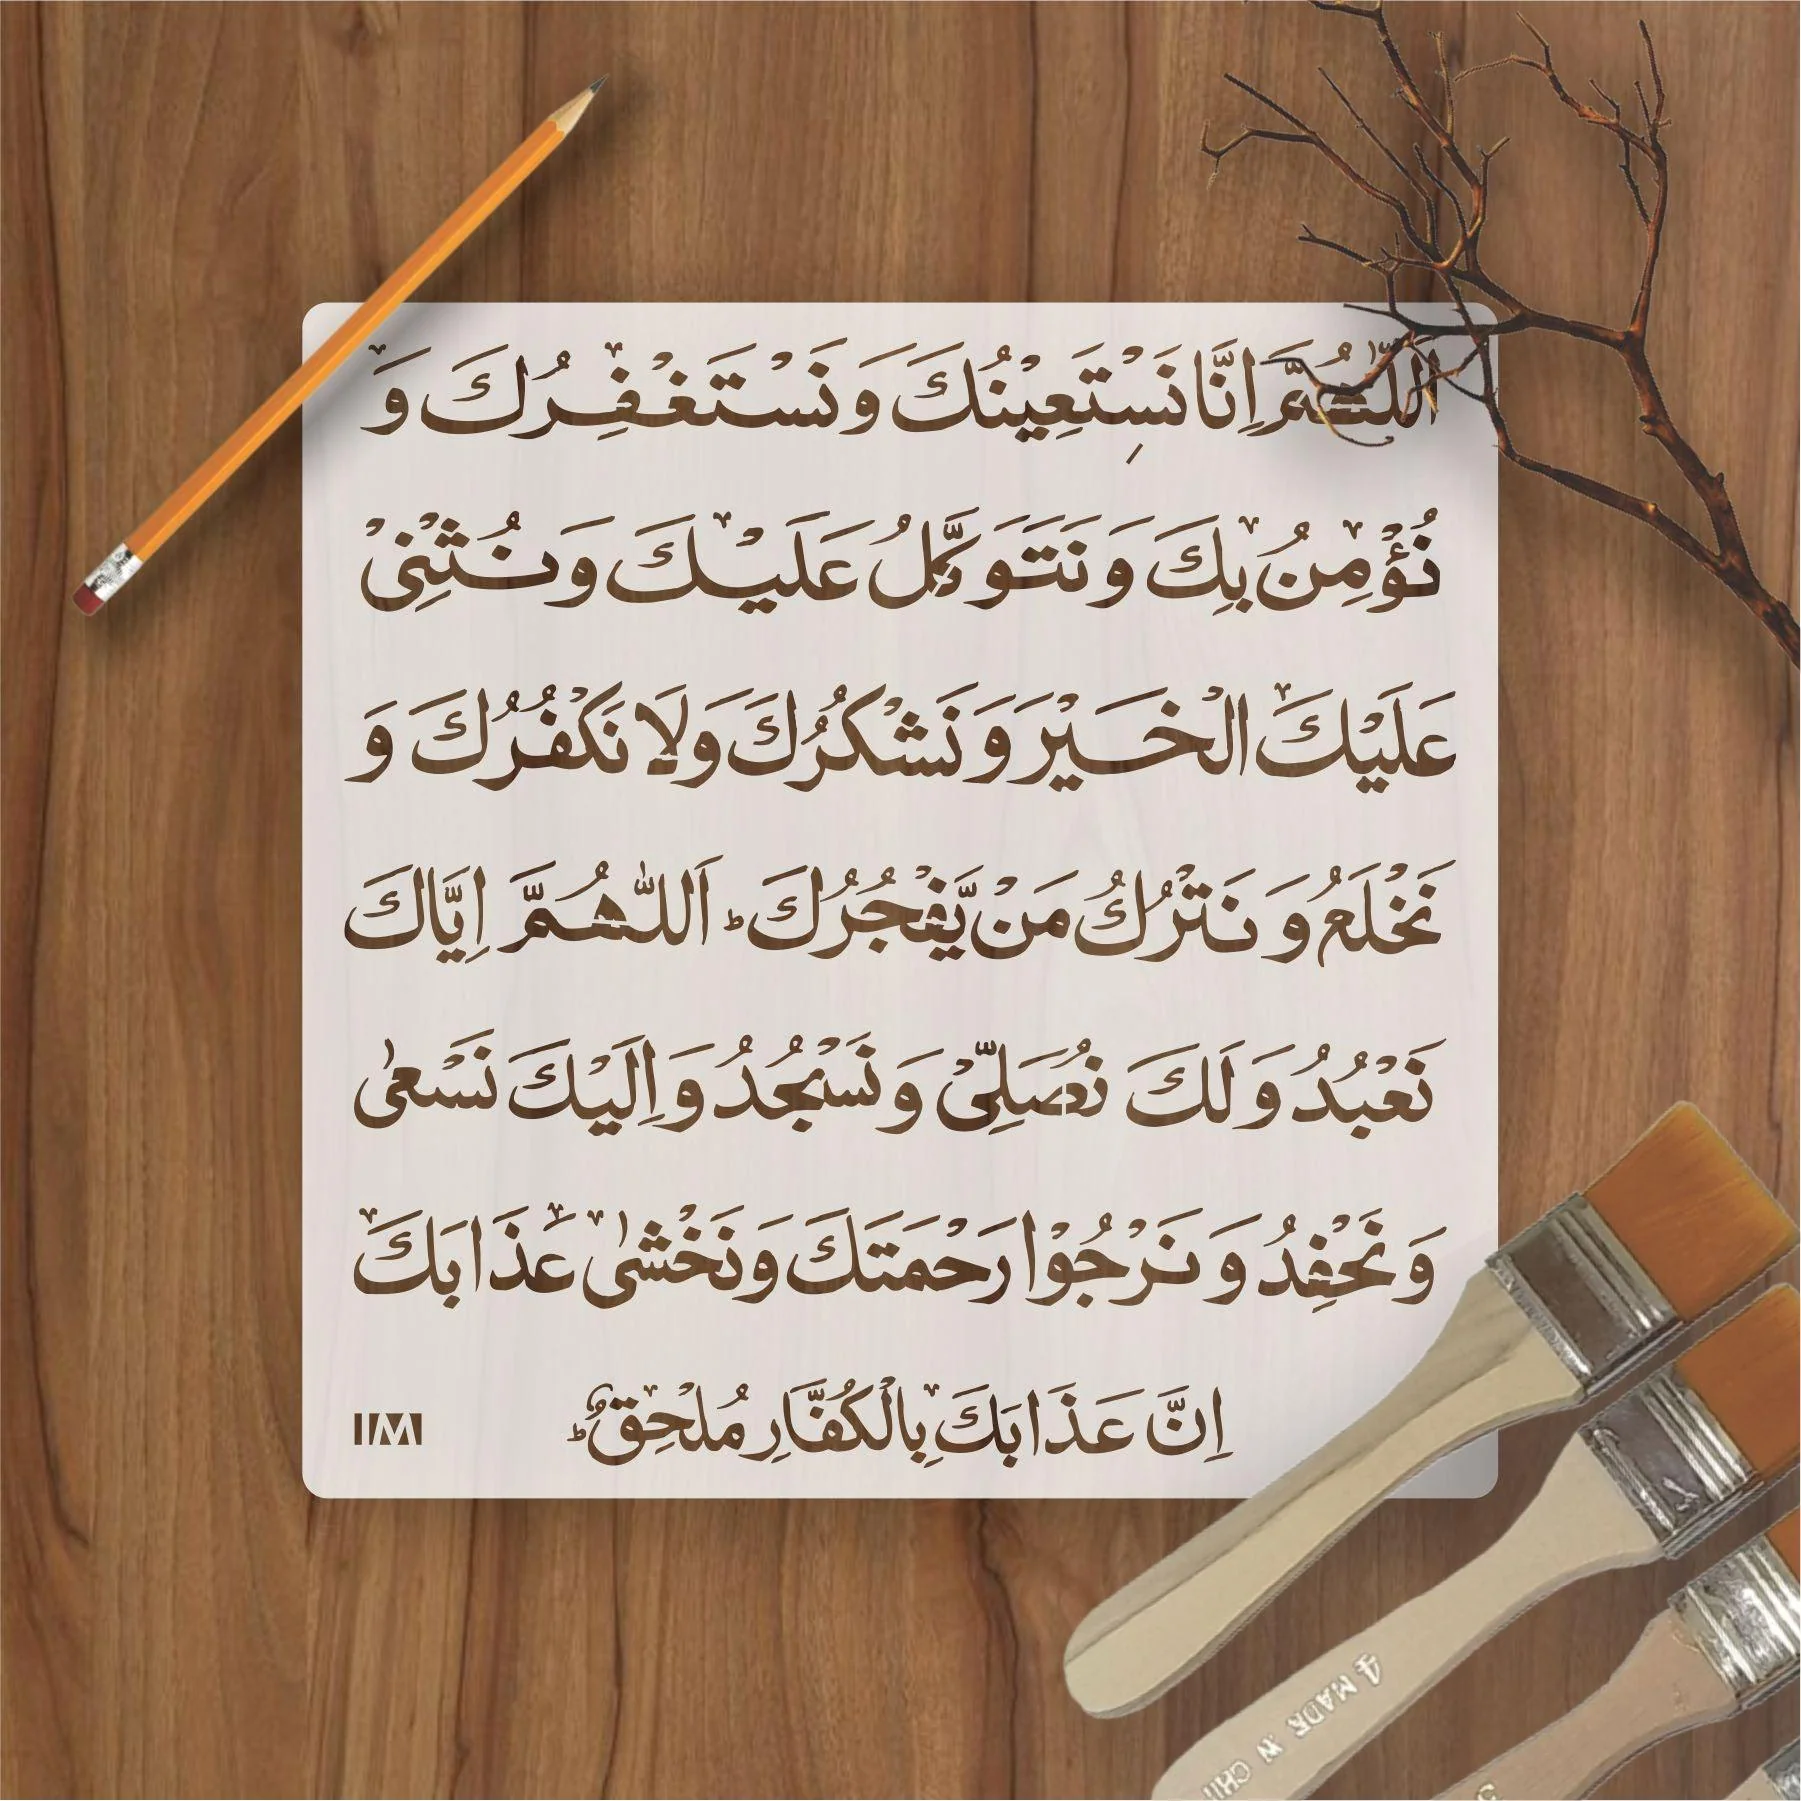 اَللّٰهُمَّ اِنَّا نَسْتَعِيْنُكَ وَ نَسْتَغْفِرُكَ وَ
نُؤْمِنُ بِكَ وَ نَتَوَكَّلُ عَلَيْكَ وَ نُثْنِیْ
عَلَيْكَ الْخَيْرَ وَ نَشْكُرُكَ وَلَا نَكْفُرُكَ وَ
نَخْلَعُ وَ نَتْرُكُ مَنْ يَّفْجُرُكَ ؕ اَللّٰهُمَّ اِيَّاكَ
نَعْبُدُ وَ لَكَ نُصَلِّیْ وَ نَسْجُدُ وَ اِلَيْكَ نَسْعٰی
وَ نَحْفِدُ وَ نَرْجُوْا رَحْمَتَكَ وَ نَخْشٰی عَذَابَكَ
اِنَّ عَذَابَكَ بِالْكُفَّارِ مُلْحِقٌ ؕ
IIM
4 MADE IN CHI